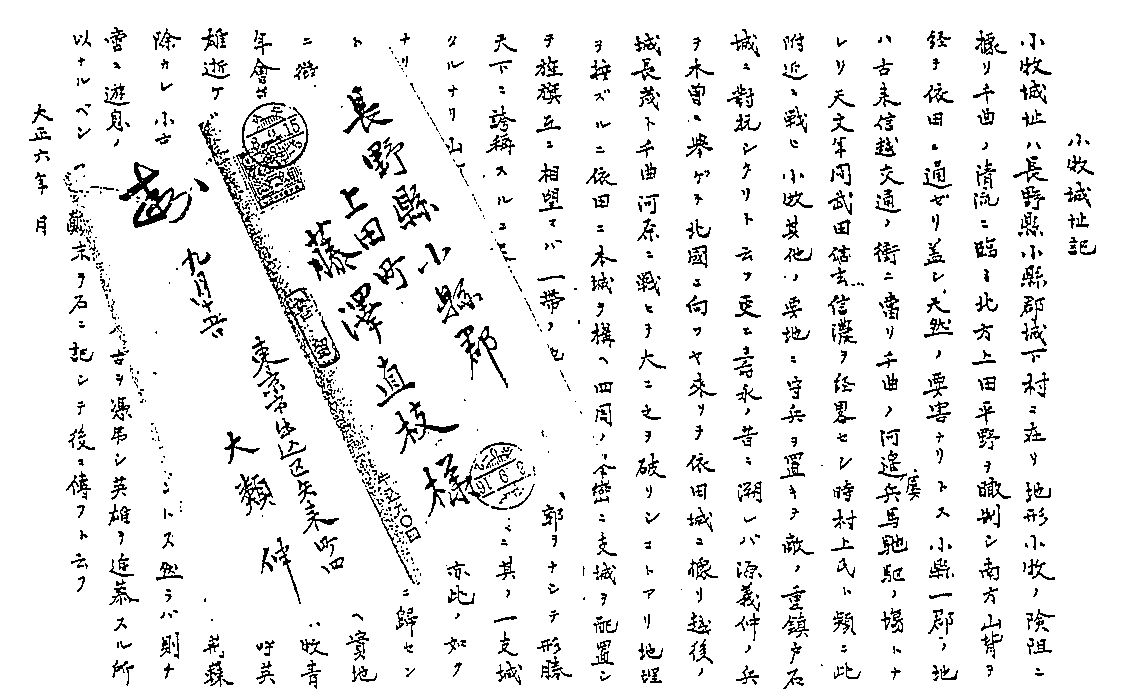 小牧城址記
小牧城址ハ長野縣小縣郡城下村ニ在リ地形小牧ノ險阻ニ
據リ千曲ノ清流ニ臨ミ北方上田平野ヲ瞰制シ南方山背ヲ
経テ依田ニ通ゼリ盖シ天然ノ要害ナリトス小縣一郡ノ地
ハ古来信越交通ノ街ニ當リ千曲ノ河邊屡兵馬馳駆ノ場トナ
レリ天文年間武田信玄信濃ヲ経畧セシ時村上氏ト頻ニ此
附近ニ戦ヒ小牧其他ノ要地ニ守兵ヲ置キテ敵ノ重鎮戸石
城ニ對抗シタリト云フ更ニ壽永ノ昔ニ溯レバ源義仲ノ兵
ヲ木曽ニ挙ゲテ北國ニ向フヤ来リテ依田城ニ據リ越後ノ
城長茂ト千曲河原ニ戦ヒテ大ニ之ヲ破リシコトアリ地理
ヲ按ズルニ依田ニ本城ヲ構ヘ四周ノ要ニ支城ヲ配置シ
テ旌旗互ニ相望マバ一帯ノ
郭ヲナシテ形勝
天下ニ誇稱スルニ
其ノ一支城
タルナリ山
亦此ノ如ク
ナリ
ニ歸セン
ト
ヘ實地
ニ
牧青
年會
時英
雄逝ケ
荊蘇
除カレ小
トス然ラバ則チ
雲ニ遊息シ
古ヲ憑吊シ英雄ヲ追慕スル所
以ナルベシ
顛末ヲ石ニ記シテ後ニ傳フト云フ
大正六年 月
長野縣小縣郡
上田町
藤澤直枝様
九月十五日
東京市牛込区矢来町四
大類伸